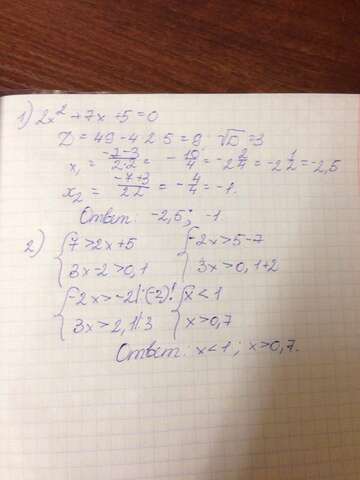 1) 2x² + 7x + 5 = 0
D = 49 - 4·2·5 = 9; √D = 3
x₁ = (-7-3)/(2·2) = -10/4 = -2 2/4 = -2 1/2 = -2,5
x₂ = (-7+3)/(2·2) = -4/4 = -1.
Ответ: -2,5; -1
2) { 7 > 2x + 5 { -2x > 5 - 7
{ 3x - 2 > 0,1 { 3x > 0,1 + 2
{ -2x > -2 |:(-2)! { x < 1
{ 3x > 2,1 |:3 { x > 0,7
Ответ: x < 1; x > 0,7.